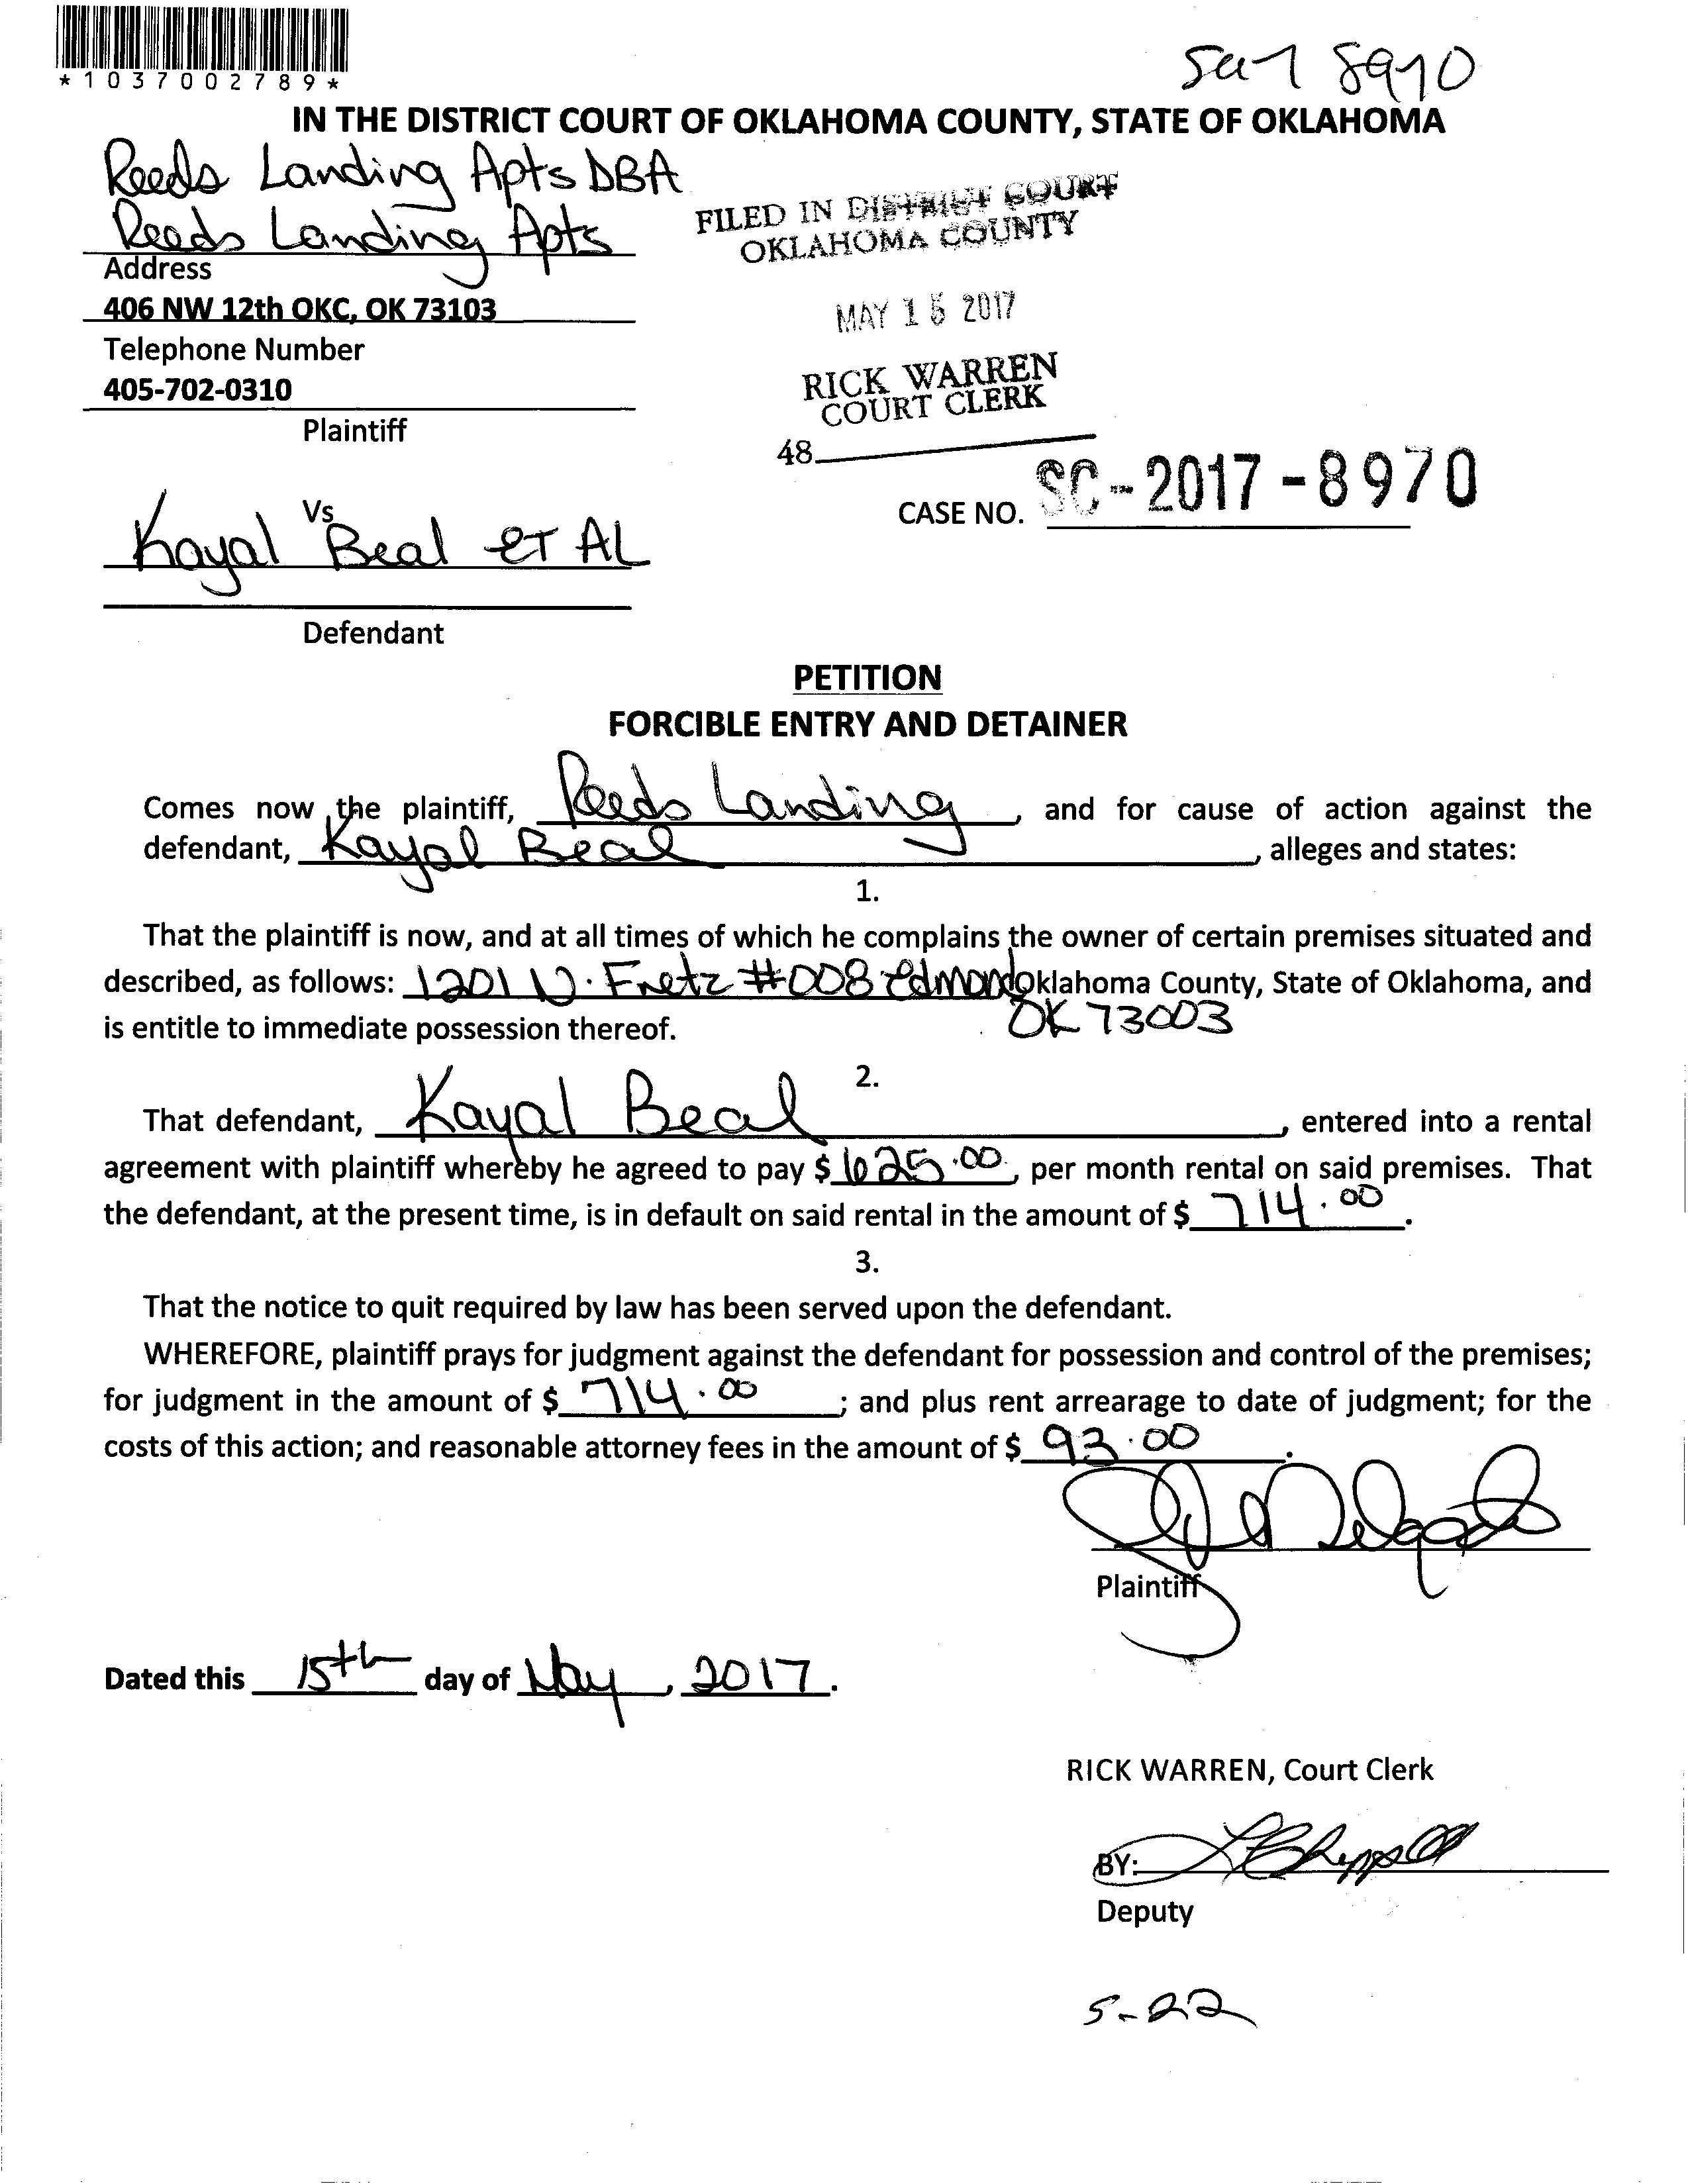 *1037002789*
8970
IN THE DISTRICT COURT OF OKLAHOMA COUNTY, STATE OF OKLAHOMA
Reeds Landing Apts DBA
Reeds Landing Apts
FILED IN DISTRICT COURT
OKLAHOMA COUNTY
Address
406 NW 12th OKC, OK 73103
MAY 15 2017
Telephone Number
405-702-0310
RICK WARREN
COURT CLERK
Plaintiff
48
Vs
CASE NO. SC-2017-8970
Kayal Beal ET AL
Defendant
PETITION
FORCIBLE ENTRY AND DETAINER
Comes now the plaintiff, Reeds Landing, and for cause of action against the
defendant, Kayal Beal, alleges and states:
1.
That the plaintiff is now, and at all times of which he complains the owner of certain premises situated and
described, as follows: 1201 N. Fretz #008 Edmond Oklahoma County, State of Oklahoma, and
is entitle to immediate possession thereof. OK 73003
2.
That defendant, Kayal Beal, entered into a rental
agreement with plaintiff whereby he agreed to pay $ 625.00, per month rental on said premises. That
the defendant, at the present time, is in default on said rental in the amount of $ 714.00.
3.
That the notice to quit required by law has been served upon the defendant.
WHEREFORE, plaintiff prays for judgment against the defendant for possession and control of the premises;
for judgment in the amount of $ 714.00; and plus rent arrearage to date of judgment; for the
costs of this action; and reasonable attorney fees in the amount of $ 93.00.
Plaintiff
Dated this 15th day of May, 2017.
RICK WARREN, Court Clerk
BY:
Deputy
5-22